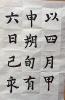 以四月甲
申朔旬有
六日己亥